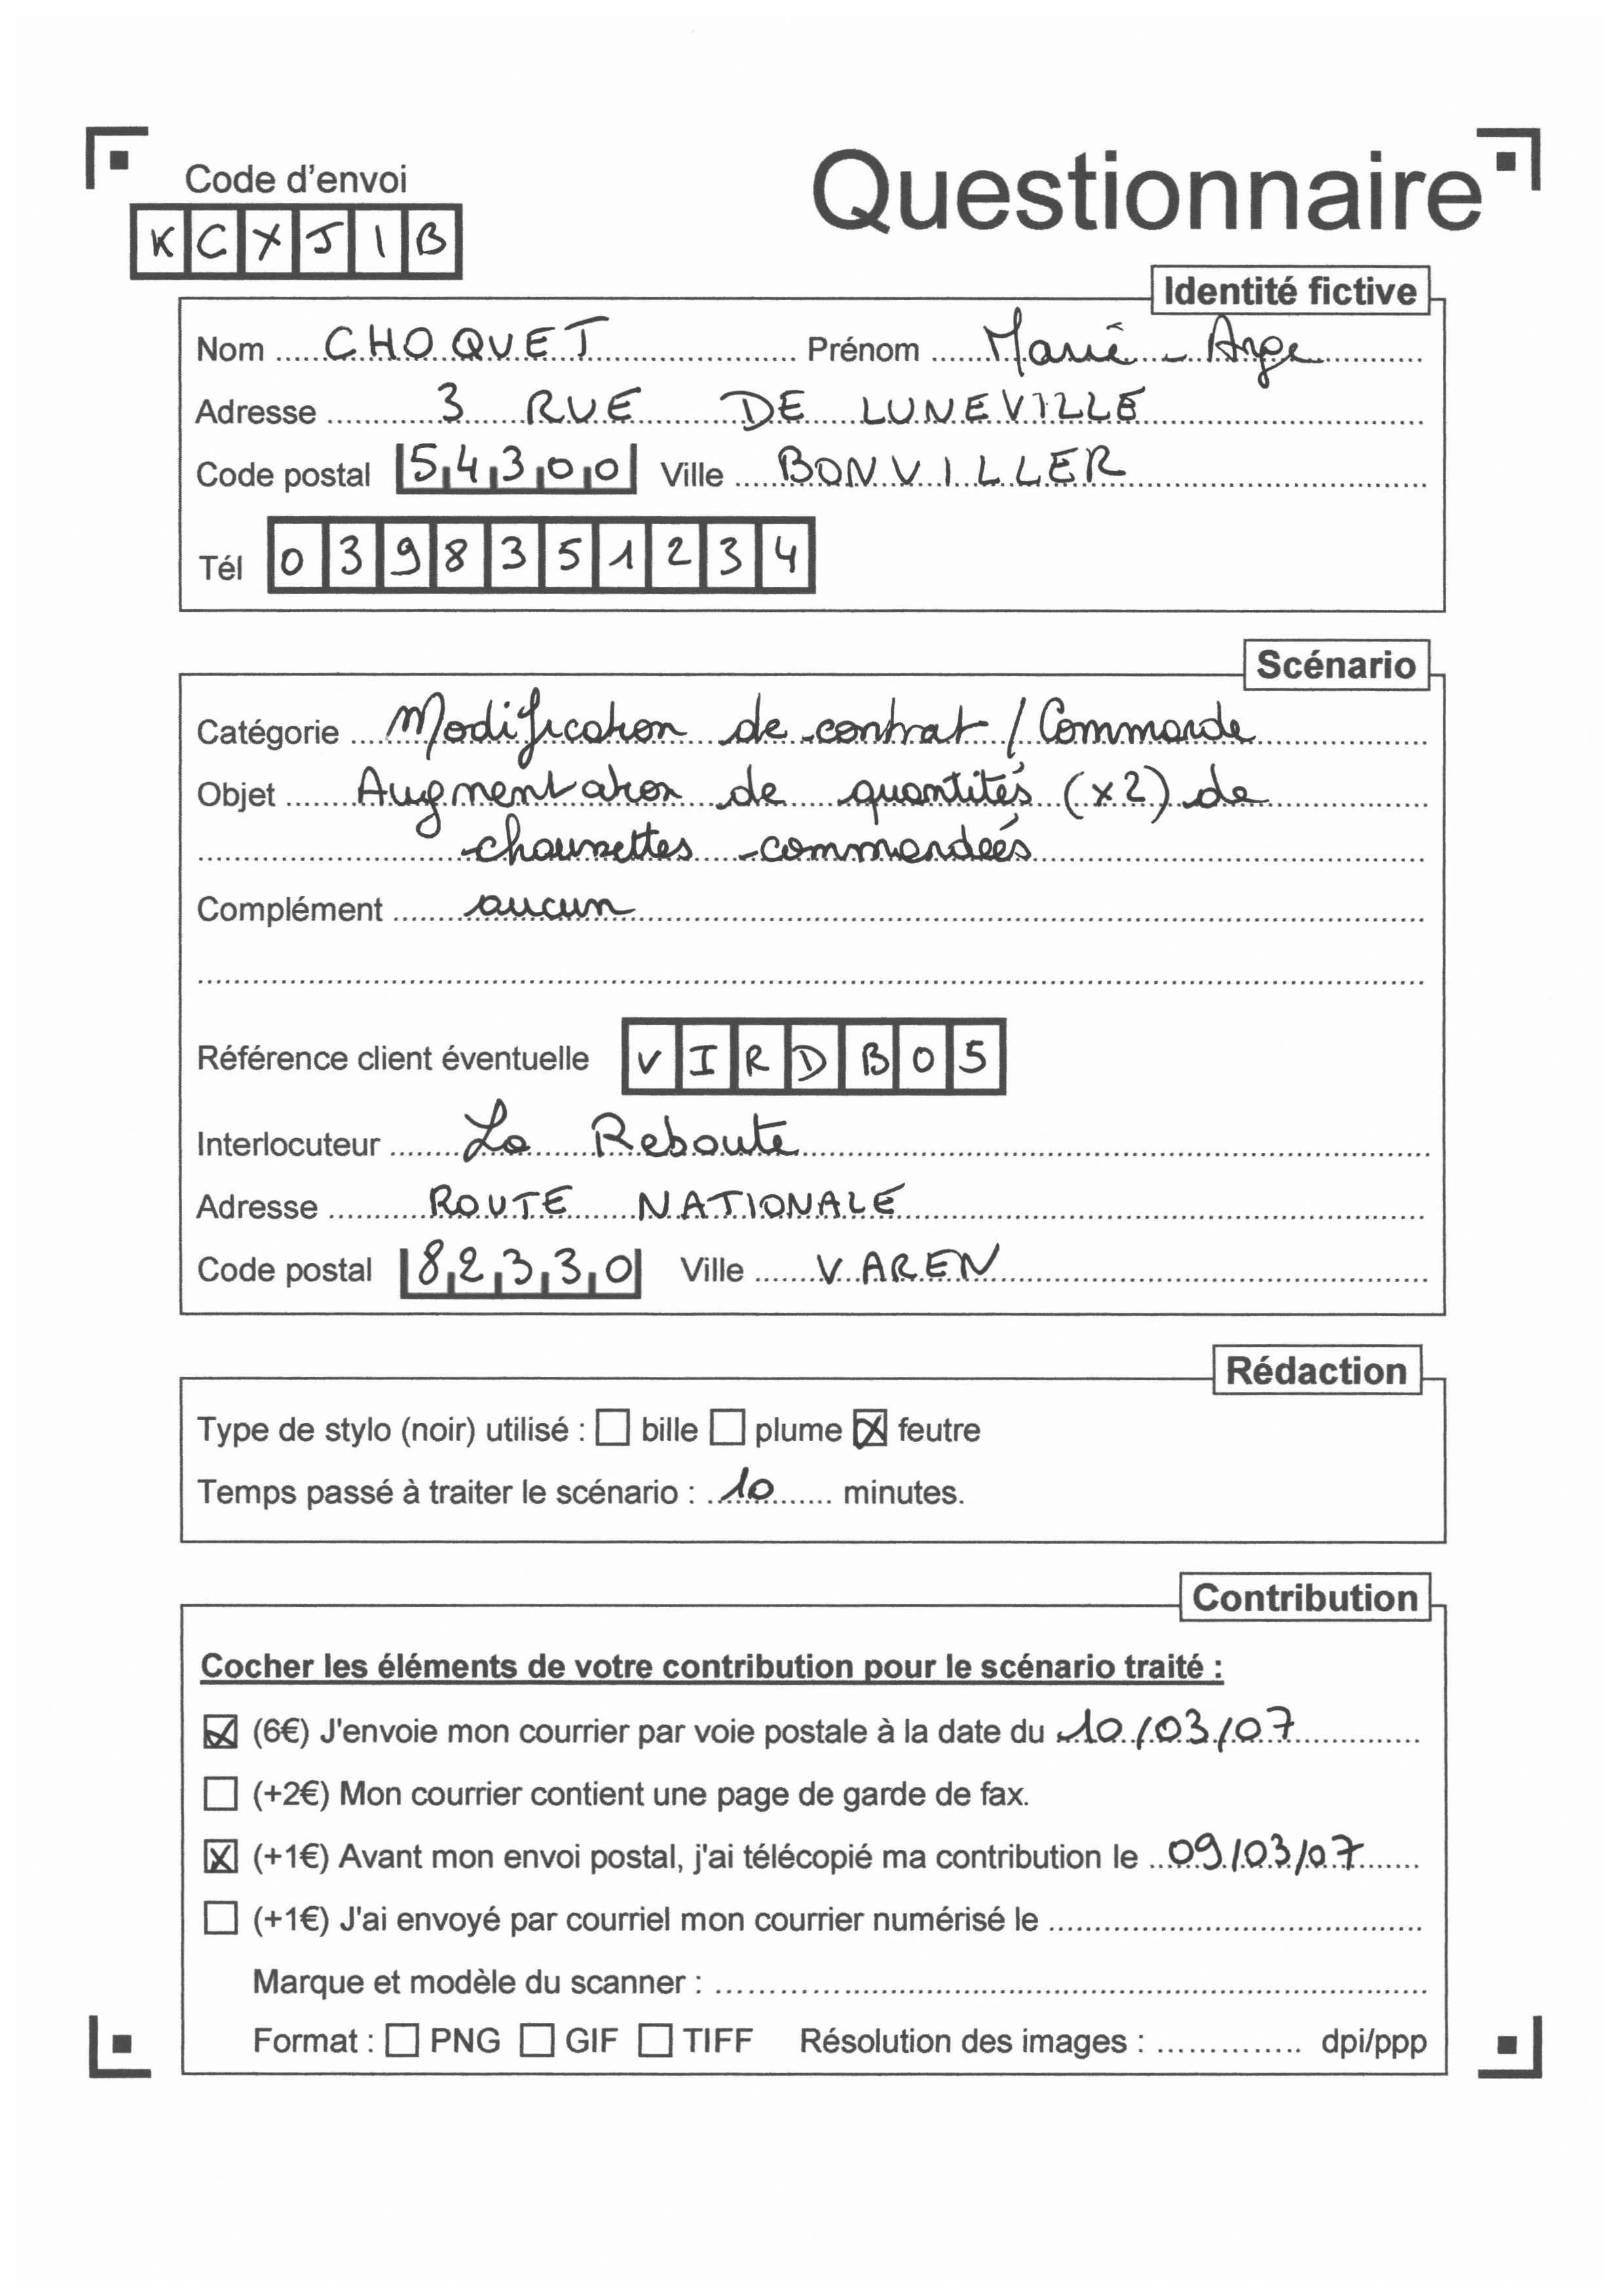 Code d'envoi
Questionnaire
K C X J I B
Identité fictive
Nom CHOQUET Prénom Marie-Ange
Adresse 3 RUE DE LUNEVILLE
Code postal 54300 Ville BONVILLER
Tél 0398351234
Scénario
Catégorie Modification de contrat / Commande
Objet Augmentation de quantités (x2) de
chaussettes commandées
Complément aucun
Référence client éventuelle VIRDB05
Interlocuteur La Reboute
Adresse ROUTE NATIONALE
Code postal 82330 Ville VAREN
Rédaction
Type de stylo (noir) utilisé : ☐ bille ☐ plume ☒ feutre
Temps passé à traiter le scénario : 10 minutes.
Contribution
Cocher les éléments de votre contribution pour le scénario traité :
☒ (6€) J'envoie mon courrier par voie postale à la date du 10/03/07
☐ (+2€) Mon courrier contient une page de garde de fax.
☒ (+1€) Avant mon envoi postal, j'ai télécopié ma contribution le 09/03/07
☐ (+1€) J'ai envoyé par courriel mon courrier numérisé le
Marque et modèle du scanner :
Format : ☐ PNG ☐ GIF ☐ TIFF Résolution des images : dpi/ppp